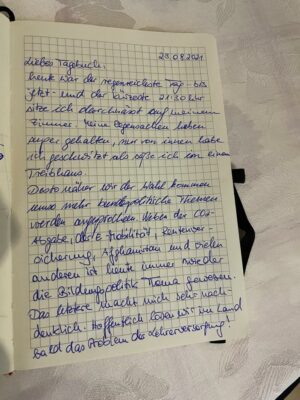 23.08.2021
Liebes Tagebuch,
heute war der regenreichste Tag - bis
jetzt - und der kürzeste. 21:30 Uhr
sitze ich durchnässt auf meinem
Zimmer. Meine Regensachen haben
super gehalten, nur von innen habe
ich geschwitzt als säße ich in einem
Treibhaus.
Desto näher wir der Wahl kommen
umso mehr bundespolitische Themen
werden angesprochen. Neben der CO2-
Abgabe, der E-Mobilität, Rentenver-
sicherung, Afghanistan und vielen
anderen ist heute immer wieder
die Bildungspolitik Thema gewesen.
Das letztere macht mich sehr nach-
denklich. Hoffentlich lösen wir im Land
bald das Problem der Lehrerversorgung!